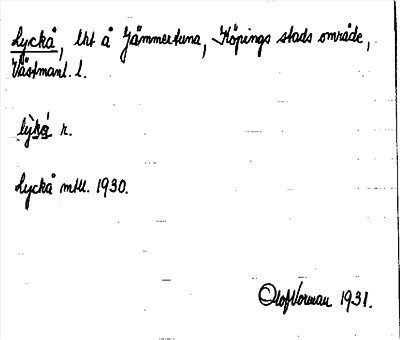 Lyckå, lht å Jämmertuna, Köpings stads område,
Västmanl. l.
lỳkǻ r.
Lyckå mtl. 1930.
Olof Norman 1931.